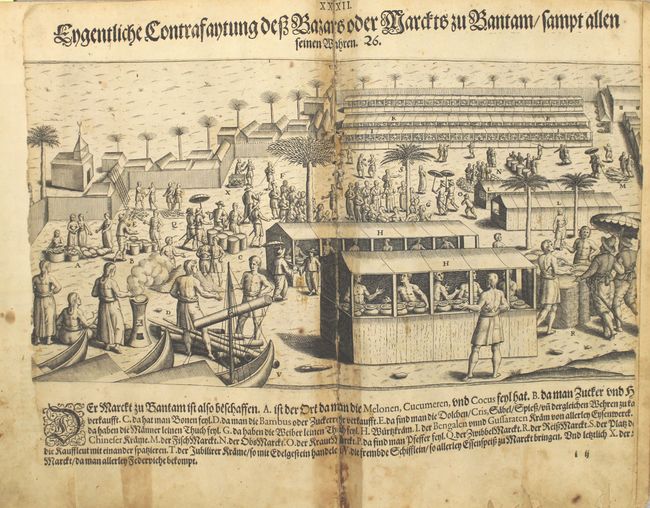 XXXII.
Eygentliche Contrafaytung deß Bazars oder Marckts zu Bantam/sampt allen
seinen Wahren. 26.
DEr Marckt zu Bantam ist also beschaffen. A. ist der Ort da man die Melonen, Cucumeren, vnd Cocus feyl hat. B. da man Zucker vnd H
verkaufft. C. da hat man Bonen feyl. D. da man die Bambus oder Zuckerrohr verkaufft. E. da find man die Dolchen/Cris, Säbel/Spieß/vñ dergleichen Wehren zu ka
da haben die Männer leinen Thuch feyl. G. da haben die Weiber leinen Thuch feyl. H. Würtzkräm. I. der Bengalen vnnd Gussaraten Kräm von allerley Eysenwerck.
Chineser Kräme. M. der Fisch Marckt. N. der Obs Marckt. O. der Kraut Marckt. P. da find man Pfeffer feyl. Q. der Zwibbel Marckt. R. der Reiß Marckt. S. der Platz de
die Kauffleut mit einander spatzieren. T. der Jubilirer Kräme/so mit Edelgestein handeln V. die frembde Schifflein/so allerley Essenspeiß zu Marckt bringen. Vnd letzlich X. der
Marckt/da man allerley Federviehe bekompt.
i ij